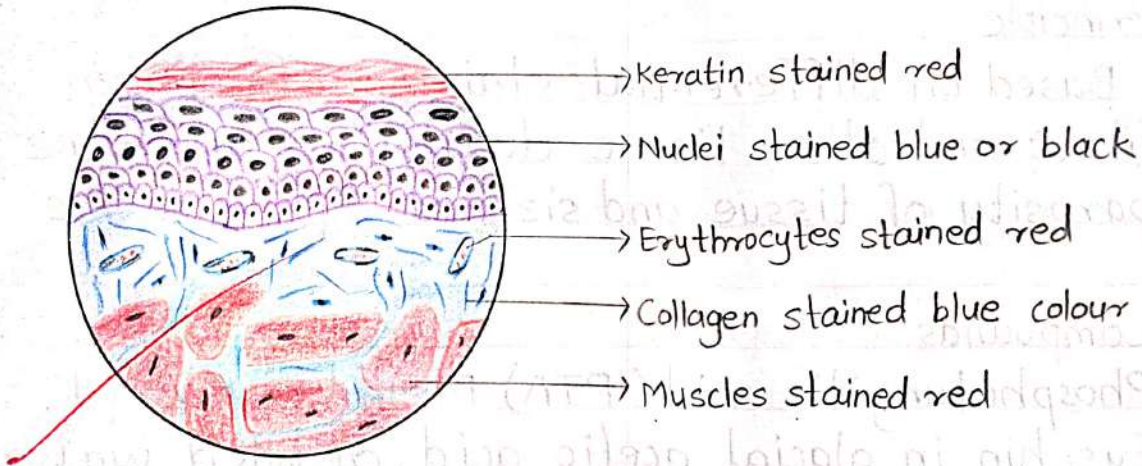 Keratin stained red
Nuclei stained blue or black
Erythrocytes stained red
Collagen stained blue colour
Muscles stained red